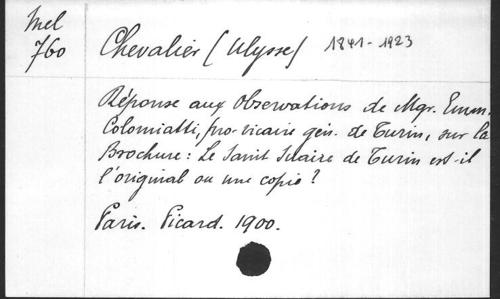 Mel
760
Chevalier (Ulysse) 1841-1923
Réponse aux Observations de Mgr. Emm.
Colomiatti, pro-vicaire gén. de Turin, sur la
Brochure: Le Saint Suaire de Turin est-il
l'original ou une copie?
Paris. Picard. 1900.